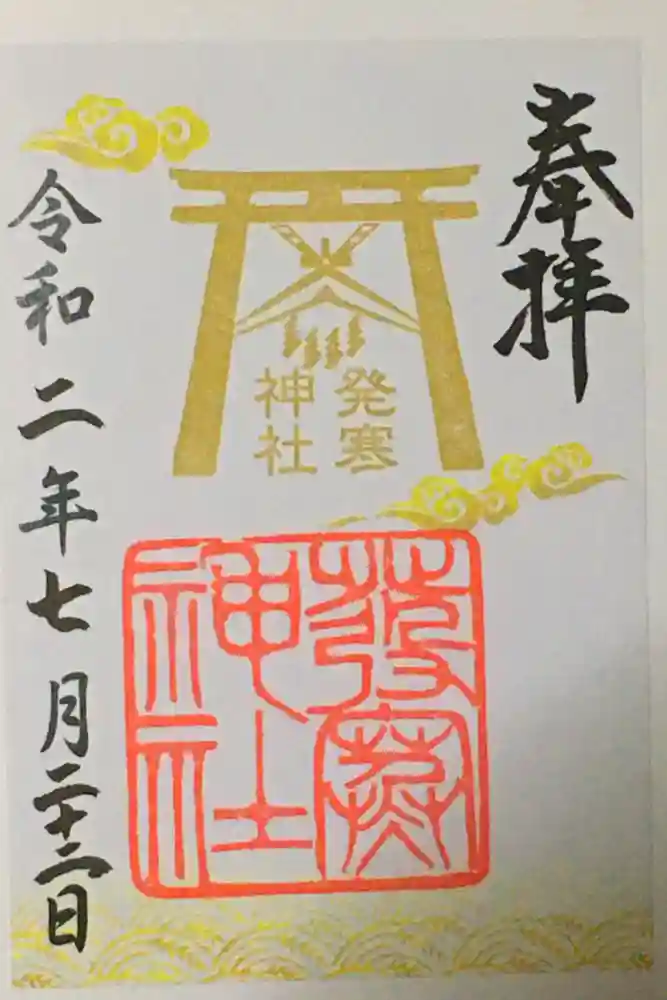 奉拝
発寒
神社
發寒
神社
令和二年七月二十二日